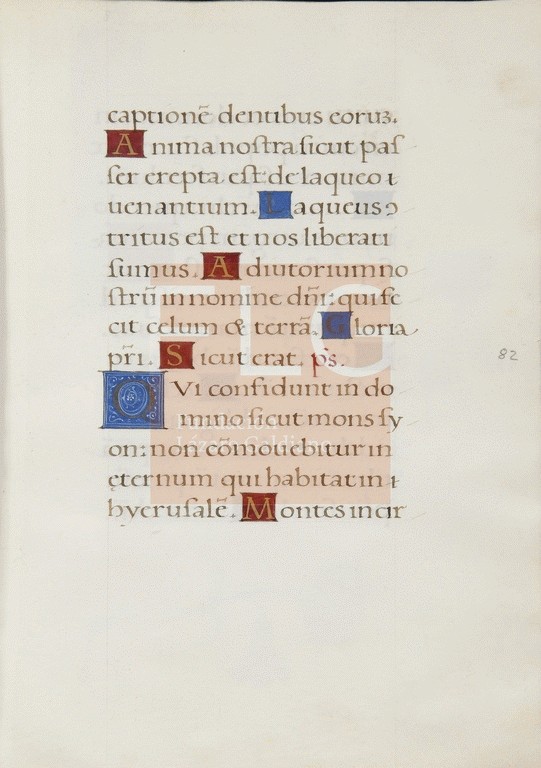 captionē dentibus eoruꝫ.
Anima nostra sicut pas
ser erepta est de laqueo ı
uenantium. Laqueus ↄ
tritus est et nos liberati
sumus. Adiutorium no
strū in nomine dñi: qui fe
cit celum & terrā. Gloria
pr̄i. Sicut erat. p̄s.
QVi confidunt in do
mino sicut mons sy
on: non cōmouebitur in
ęternum qui habitat in ı
hyerusalē. Montes in cir
82
FLG
Fundación
Lázaro Galdiano